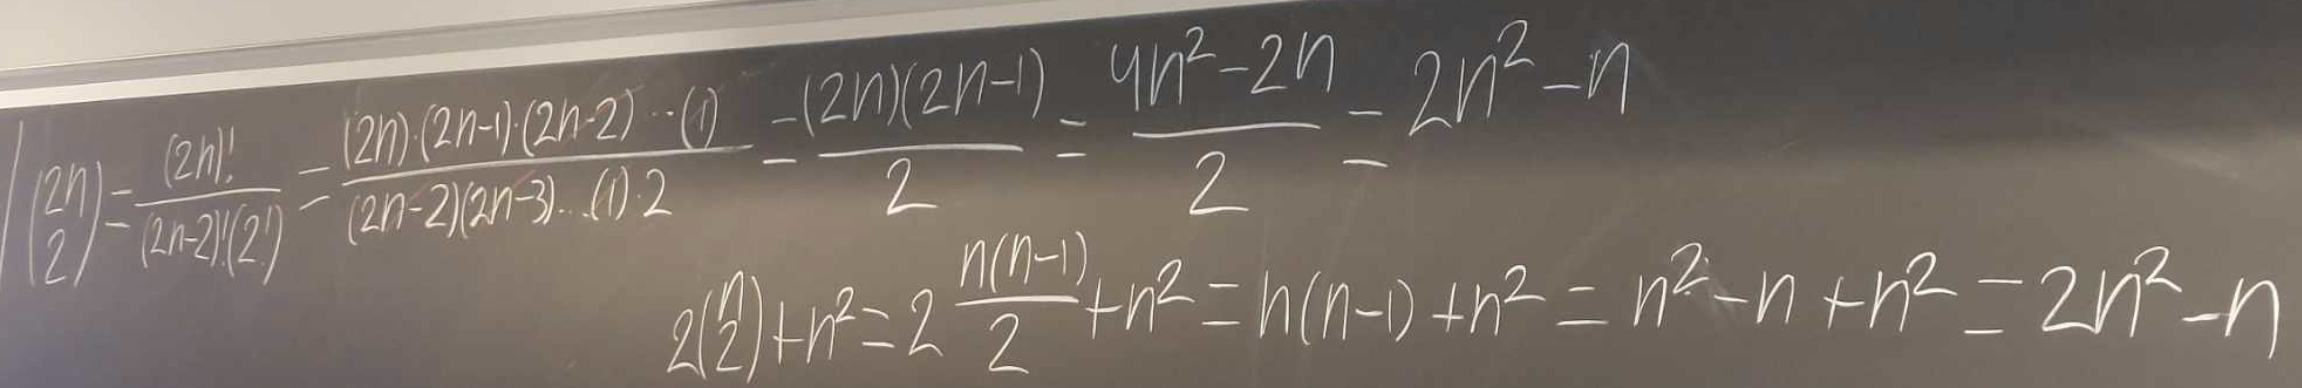 \binom{2n}{2} = \frac{(2n)!}{(2n-2)!(2!)} = \frac{(2n)\cdot(2n-1)\cdot(2n-2)\cdots(1)}{(2n-2)(2n-3)\ldots(1)\cdot 2} = \frac{(2n)(2n-1)}{2} = \frac{4n^2-2n}{2} = 2n^2-n
2\binom{n}{2}+n^2 = 2\frac{n(n-1)}{2}+n^2 = n(n-1)+n^2 = n^2-n+n^2 = 2n^2-n